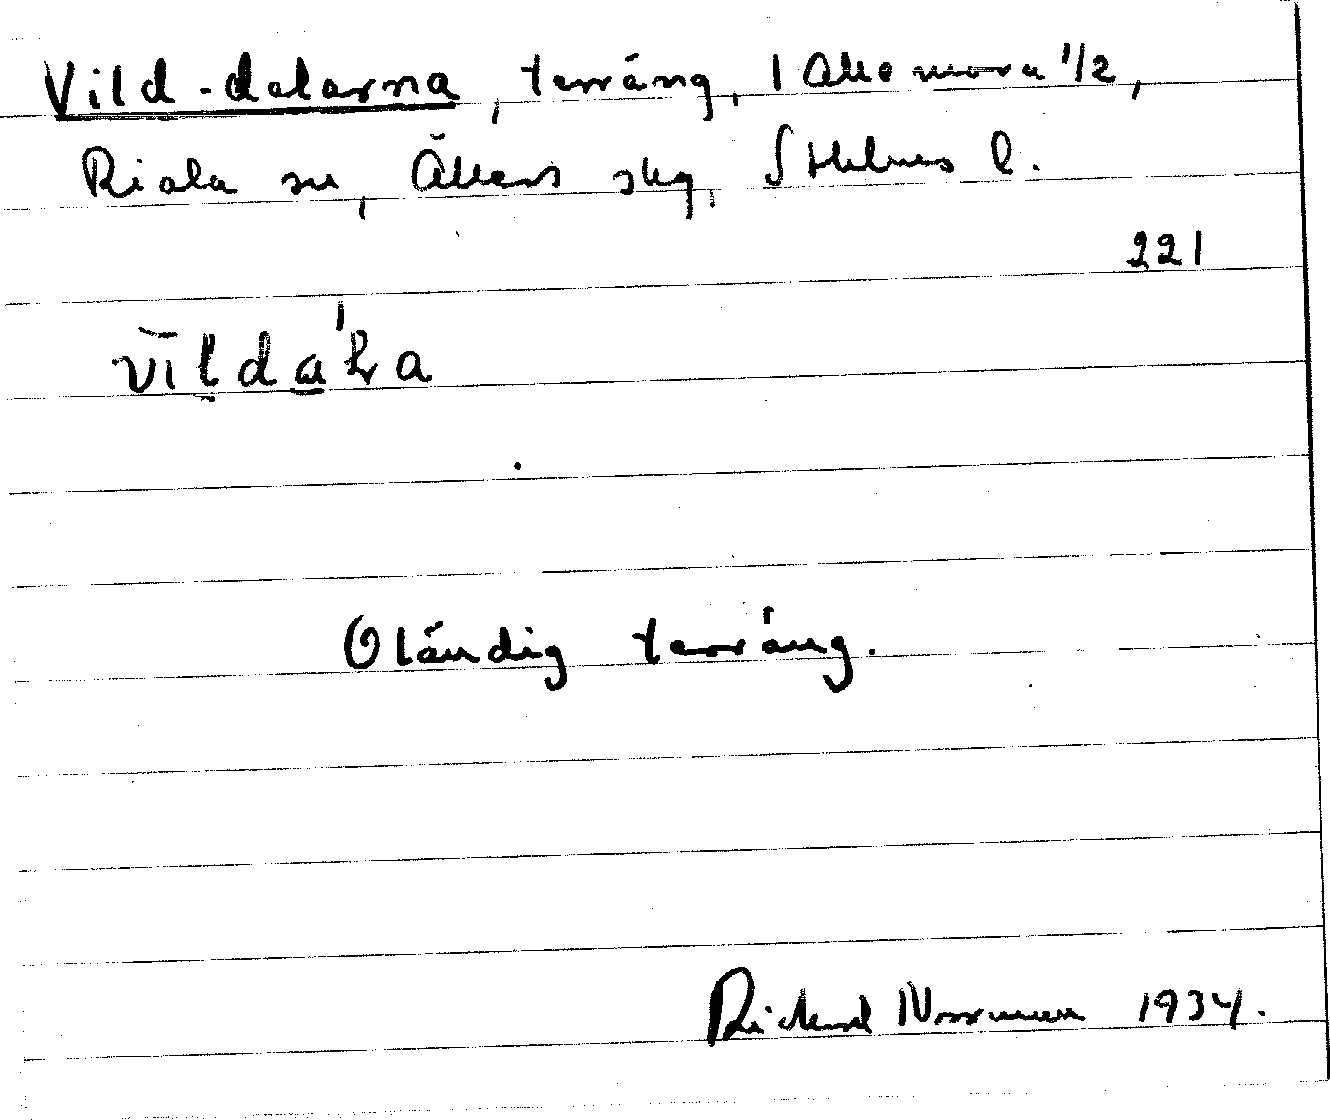 Vild-dalarna, terräng, 1 Allemora 1/2,
Riala sn, Åkers skg, Sthlms l.
221
Oländig terräng.
Rickard Norrman 1934.